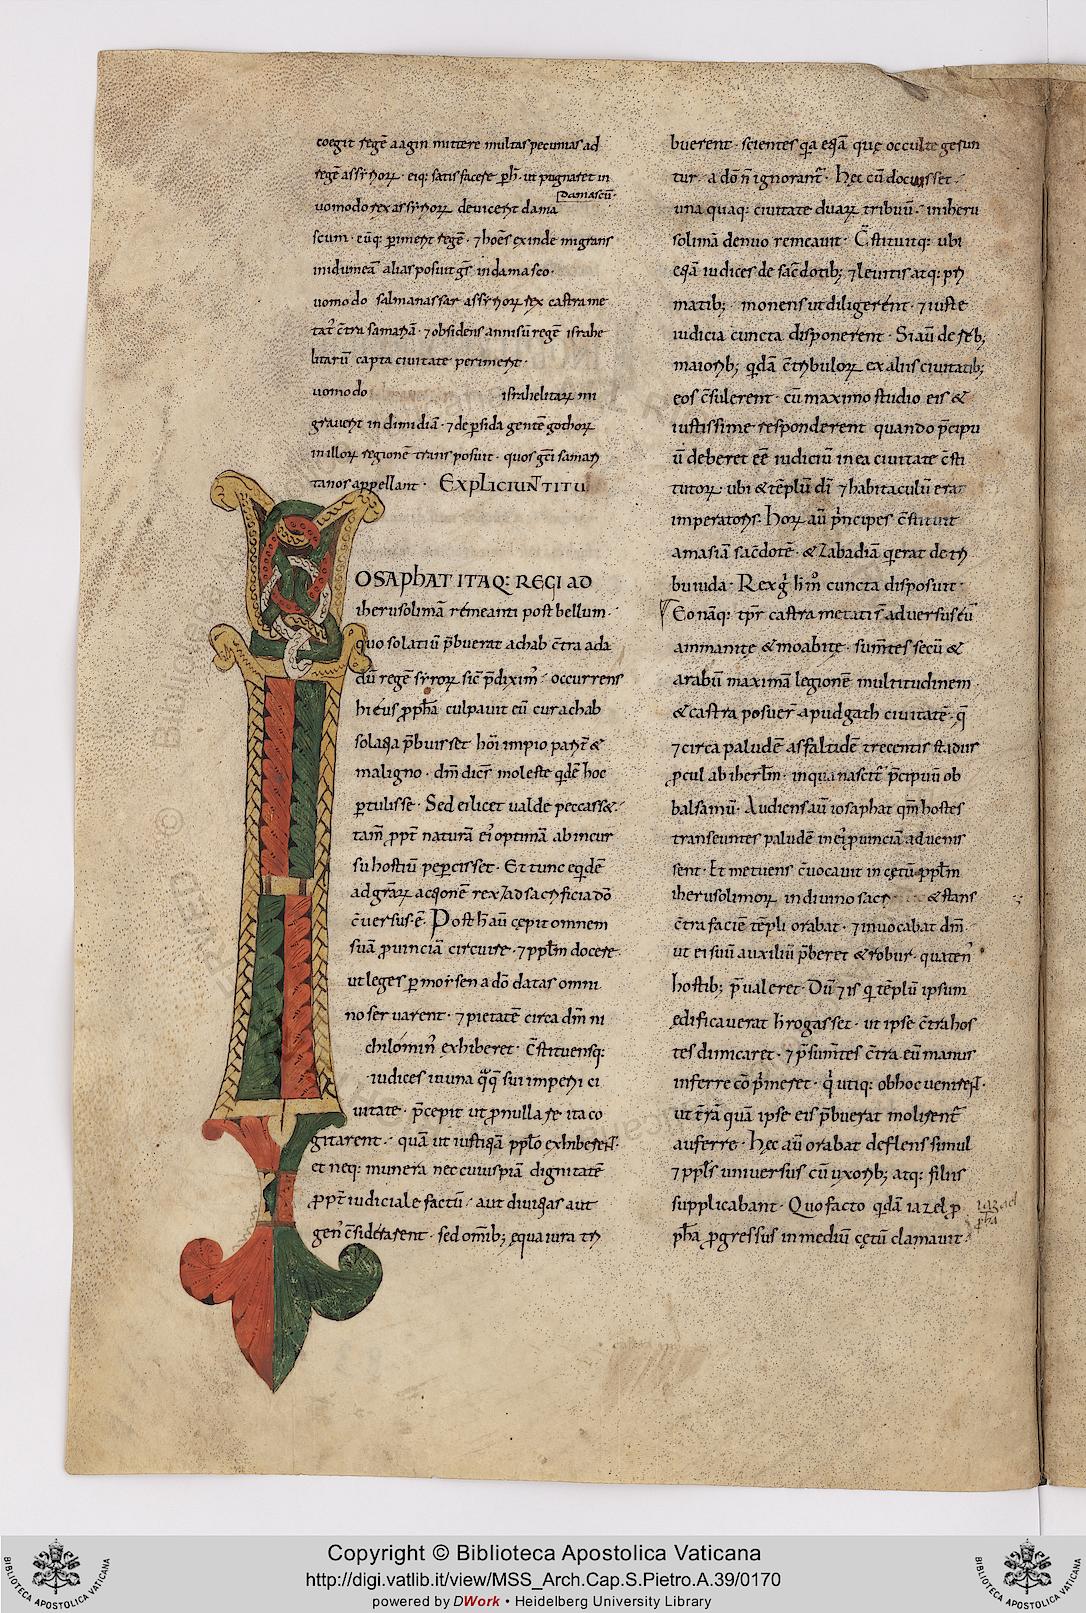 coegit regē aagin mittere multas pecunias ad
regē assẏrioꝝ · eiq; satisfacere ꝑh · ut pugnaret in
damascū ·
uomodo rex assẏrioꝝ devicerit dama
scum · eūq; ꝑimerit regē · ⁊ hoēs exinde migrans
in idumeā alias posuit gēs in damasco ·
uomodo salmanassar assẏrioꝝ rex castra me
tat' c̄tra samariā · ⁊ obsidens annis regē israhe
litarū capta civitate perimerit ·
uomodo israhelitaꝝ mi
graverit in dimidiā · ⁊ de persida gentē gothoꝝ
in illoꝝ regionē transposuit · quos gr̄ci samari
tanos appellant · EXPLICIUNT TITU
OSAPHAT ITAQ: REGI AD
iherusolimā remeanti post bellum ·
quo solatiū p̄buerat achab c̄tra ada
dū regē sẏroꝝ sic p̄diximꝰ · occurrens
hieus ꝓph̄a culpavit eū cur achab
solatia p̄buisset hōi impio parit̄ &
maligno · dm̄ dicēs moleste qdē hoc
ꝑtulisse · Sed ei licet valde peccass& ·
tam̄ ꝓpt̄ naturā eiꝰ optimā ab incur
su hostiū pepercisset · Et tunc eqdē
ad gr̄aꝝ actionē rex ⁊ ad sacrificia dō
c̄versus · ē · Post h̄ aū cępit omnem
suā ꝓvinciā circuire · ⁊ ppl̄m docere ·
ut leges ꝑ moẏsen a dō datas omni
no servarent · ⁊ pietatē circa dm̄ ni
chilominꝰ exhiberet · C̄stituensq;
iudices in una q̄q̄ sui imperii ci
vitate · p̄cepit ut ꝓ nulla re ita co
gitarent · quā ut iustitiā pplo exhiberent ·
et neq; munera nec cuiuspiā dignitatē
ꝓpt̄ iudiciale factū · aut divitias aut
genꝰ c̄siderarent · sed omīb; ęqua iura tri
buerent · scientes qa etiā quę occulte gerun
tur · a dō n̄ ignorant̄ · Hęc cū docuisset ·
una quaq; civitate duaꝝ tribuū · in iheru
solimā denuo remeavit · C̄stituitq; ubi
etiā iudices de sacdotib; ⁊ levitis atq; pri
matib; monens ut diligenter · ⁊ iuste
iudicia cuncta disponerent · Si aū de reb;
maiorib; qdā c̄tribuloꝝ ex aliis civitatib;
eos c̄sulerent · cū maximo studio eis &
iustissime responderent quando p̄cipu
ū deberet eē iudiciū in ea civitate c̄sti
tutoꝝ · ubi & tēplū dī ⁊ habitaculū erat
imperatoris · Hoꝝ aū p̄ncipes c̄stituit
amasiā sac̄dotē · & zabadiā qerat de tri
bu iuda · Rex gͥ hīm̊ cuncta disposuit ·
Eo nāq; tp̄r castra metati sr̄ adversus eū
ammanitę & moabitę · sum̄tes secū &
arabū maximā legionē multitudinem ·
& castra posuer̄ apud gath civitatē · q̄
⁊ circa paludē asfaltidē trecentis stadiis
ꝓcul ab iherlm̄ · in qua nascit̄ p̄cipuū ob
balsamū · Audiens aū iosaphat qm̄ hostes
transeuntes paludē in eiꝰ ꝓvinciā advenis
sent · Et metuens c̄vocavit in cętū ppl̄m
iherusolimoꝝ in divino & stans
c̄tra faciē tēpli orabat · ⁊ invocabat dm̄ ·
ut ei suū auxiliū p̄beret & robur · quatenꝰ
hostib; p̄valeret · Dū ⁊ is q tēplū ipsum
ędificaverat h̄ rogasset · ut ipse c̄tra hos
tes dimicaret · ⁊ p̄sum̄tes c̄tra eū manus
inferre cōp̄meret · qͥ utiq; ob hoc venirent ·
ut tr̄ā quā ipse eis p̄buerat molirent̄
auferre · Hęc aū orabat deflens simul
⁊ ppl̄s universus cū uxorib; atq; filiis
supplicabant · Quo facto qdā iazel ꝓ
iaziel
ꝓph̄a
ph̄a ꝓgressus in mediū cętū clamavit ·
Copyright © Biblioteca Apostolica Vaticana
http://digi.vatlib.it/view/MSS_Arch.Cap.S.Pietro.A.39/0170
powered by DWork • Heidelberg University Library
BIBLIOTECA APOSTOLICA VATICANA
BIBLIOTECA APOSTOLICA VATICANA